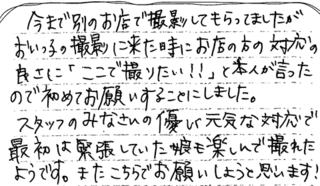 今まで別のお店で撮影してもらってましたが
おいっ子の撮影に来た時にお店の方の対応の
良さに「ここで撮りたい!!」と本人が言った
ので初めてお願いすることにしました。
スタッフのみなさいの優しい元気な対応で
最初は緊張していた娘も楽しんで撮れた
ようです。またこちらでお願いしようと思います!